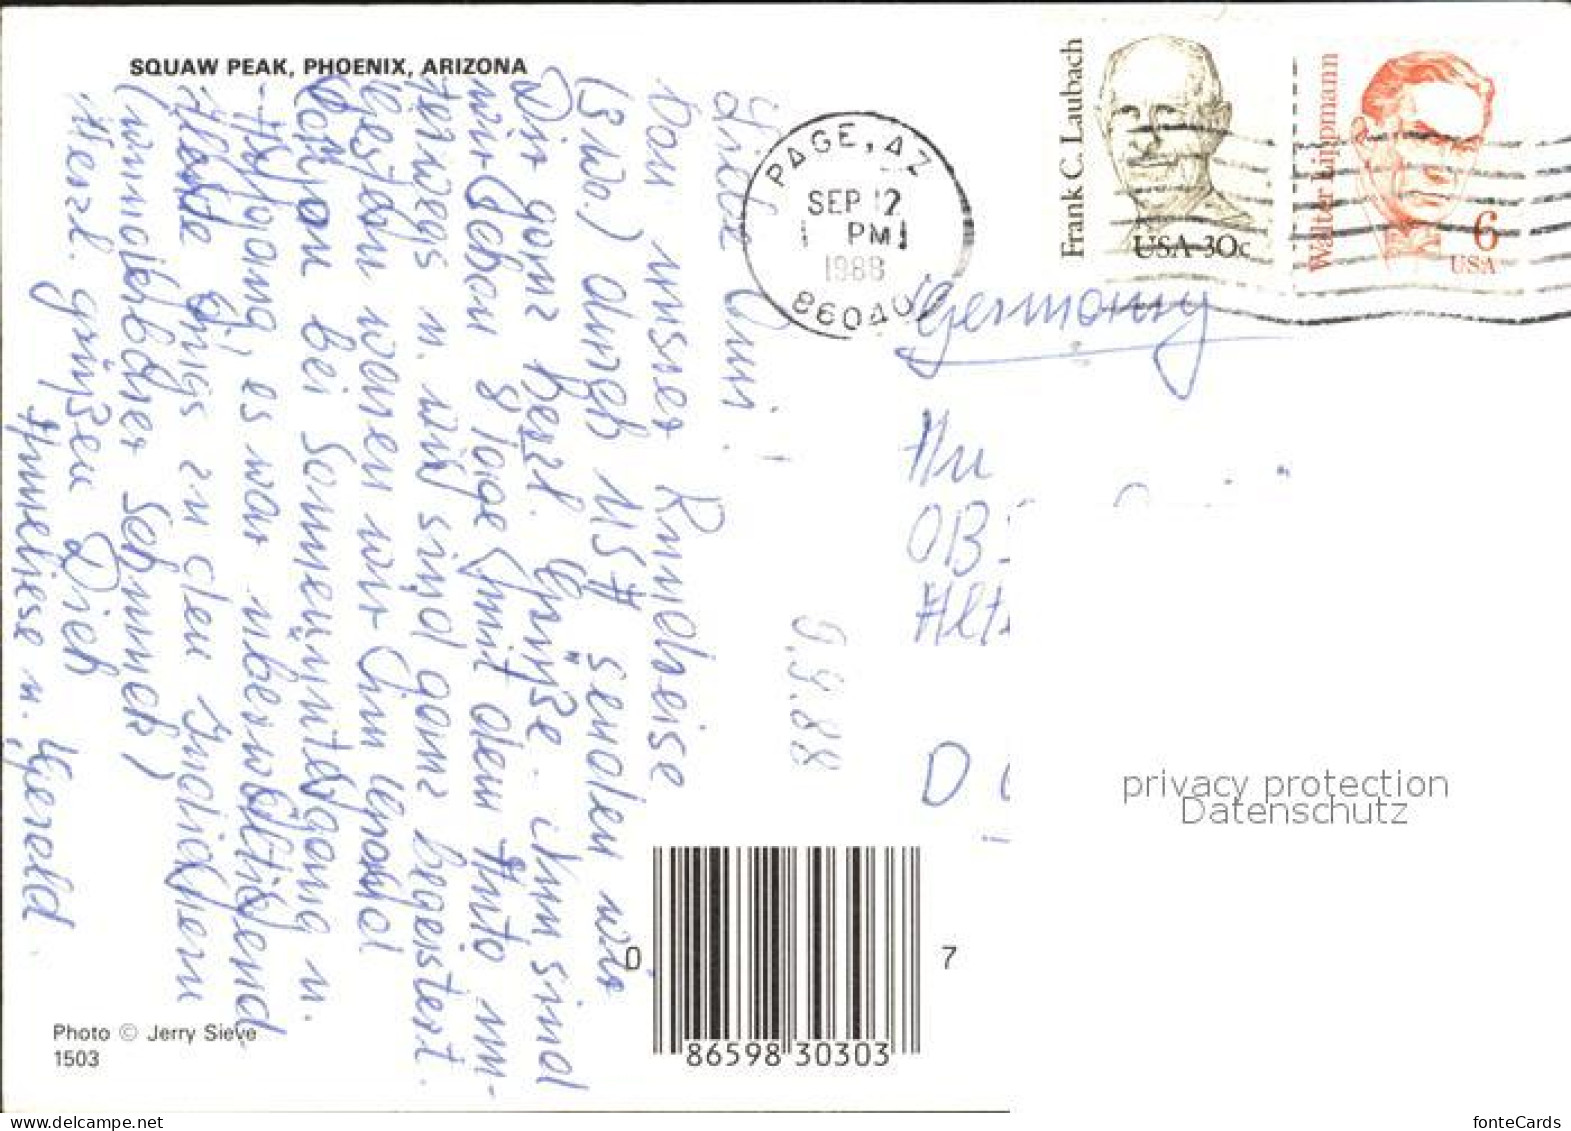 SQUAW PEAK, PHOENIX, ARIZONA
Liebe Omi!
Von unser Rundreise
(3 Wo.) durch USA senden wir
Dir ganz herzl. Grüße. Nun sind
wir schon 8 Tage mit dem Auto un-
terwegs u. wir sind ganz begeistert.
Gestern waren wir im Grand
Canyon bei Sonnenuntergang u.
-Aufgang, es war überwältigend
Heute gings zu den Indianern
(wunderbarer Schmuck)
Herzl. grüßen Dich
Anneliese u. Gerold.
9.9.88
Photo © Jerry Sieve
1503
0 86598 30303 7
PAGE, AZ
SEP 12
PM
1988
86040
Frank C. Laubach
USA 30c
Walter Lippmann
6
USA
Germany
An
OB
Alt
D
privacy protection
Datenschutz
www.delcampe.net
fonteCards